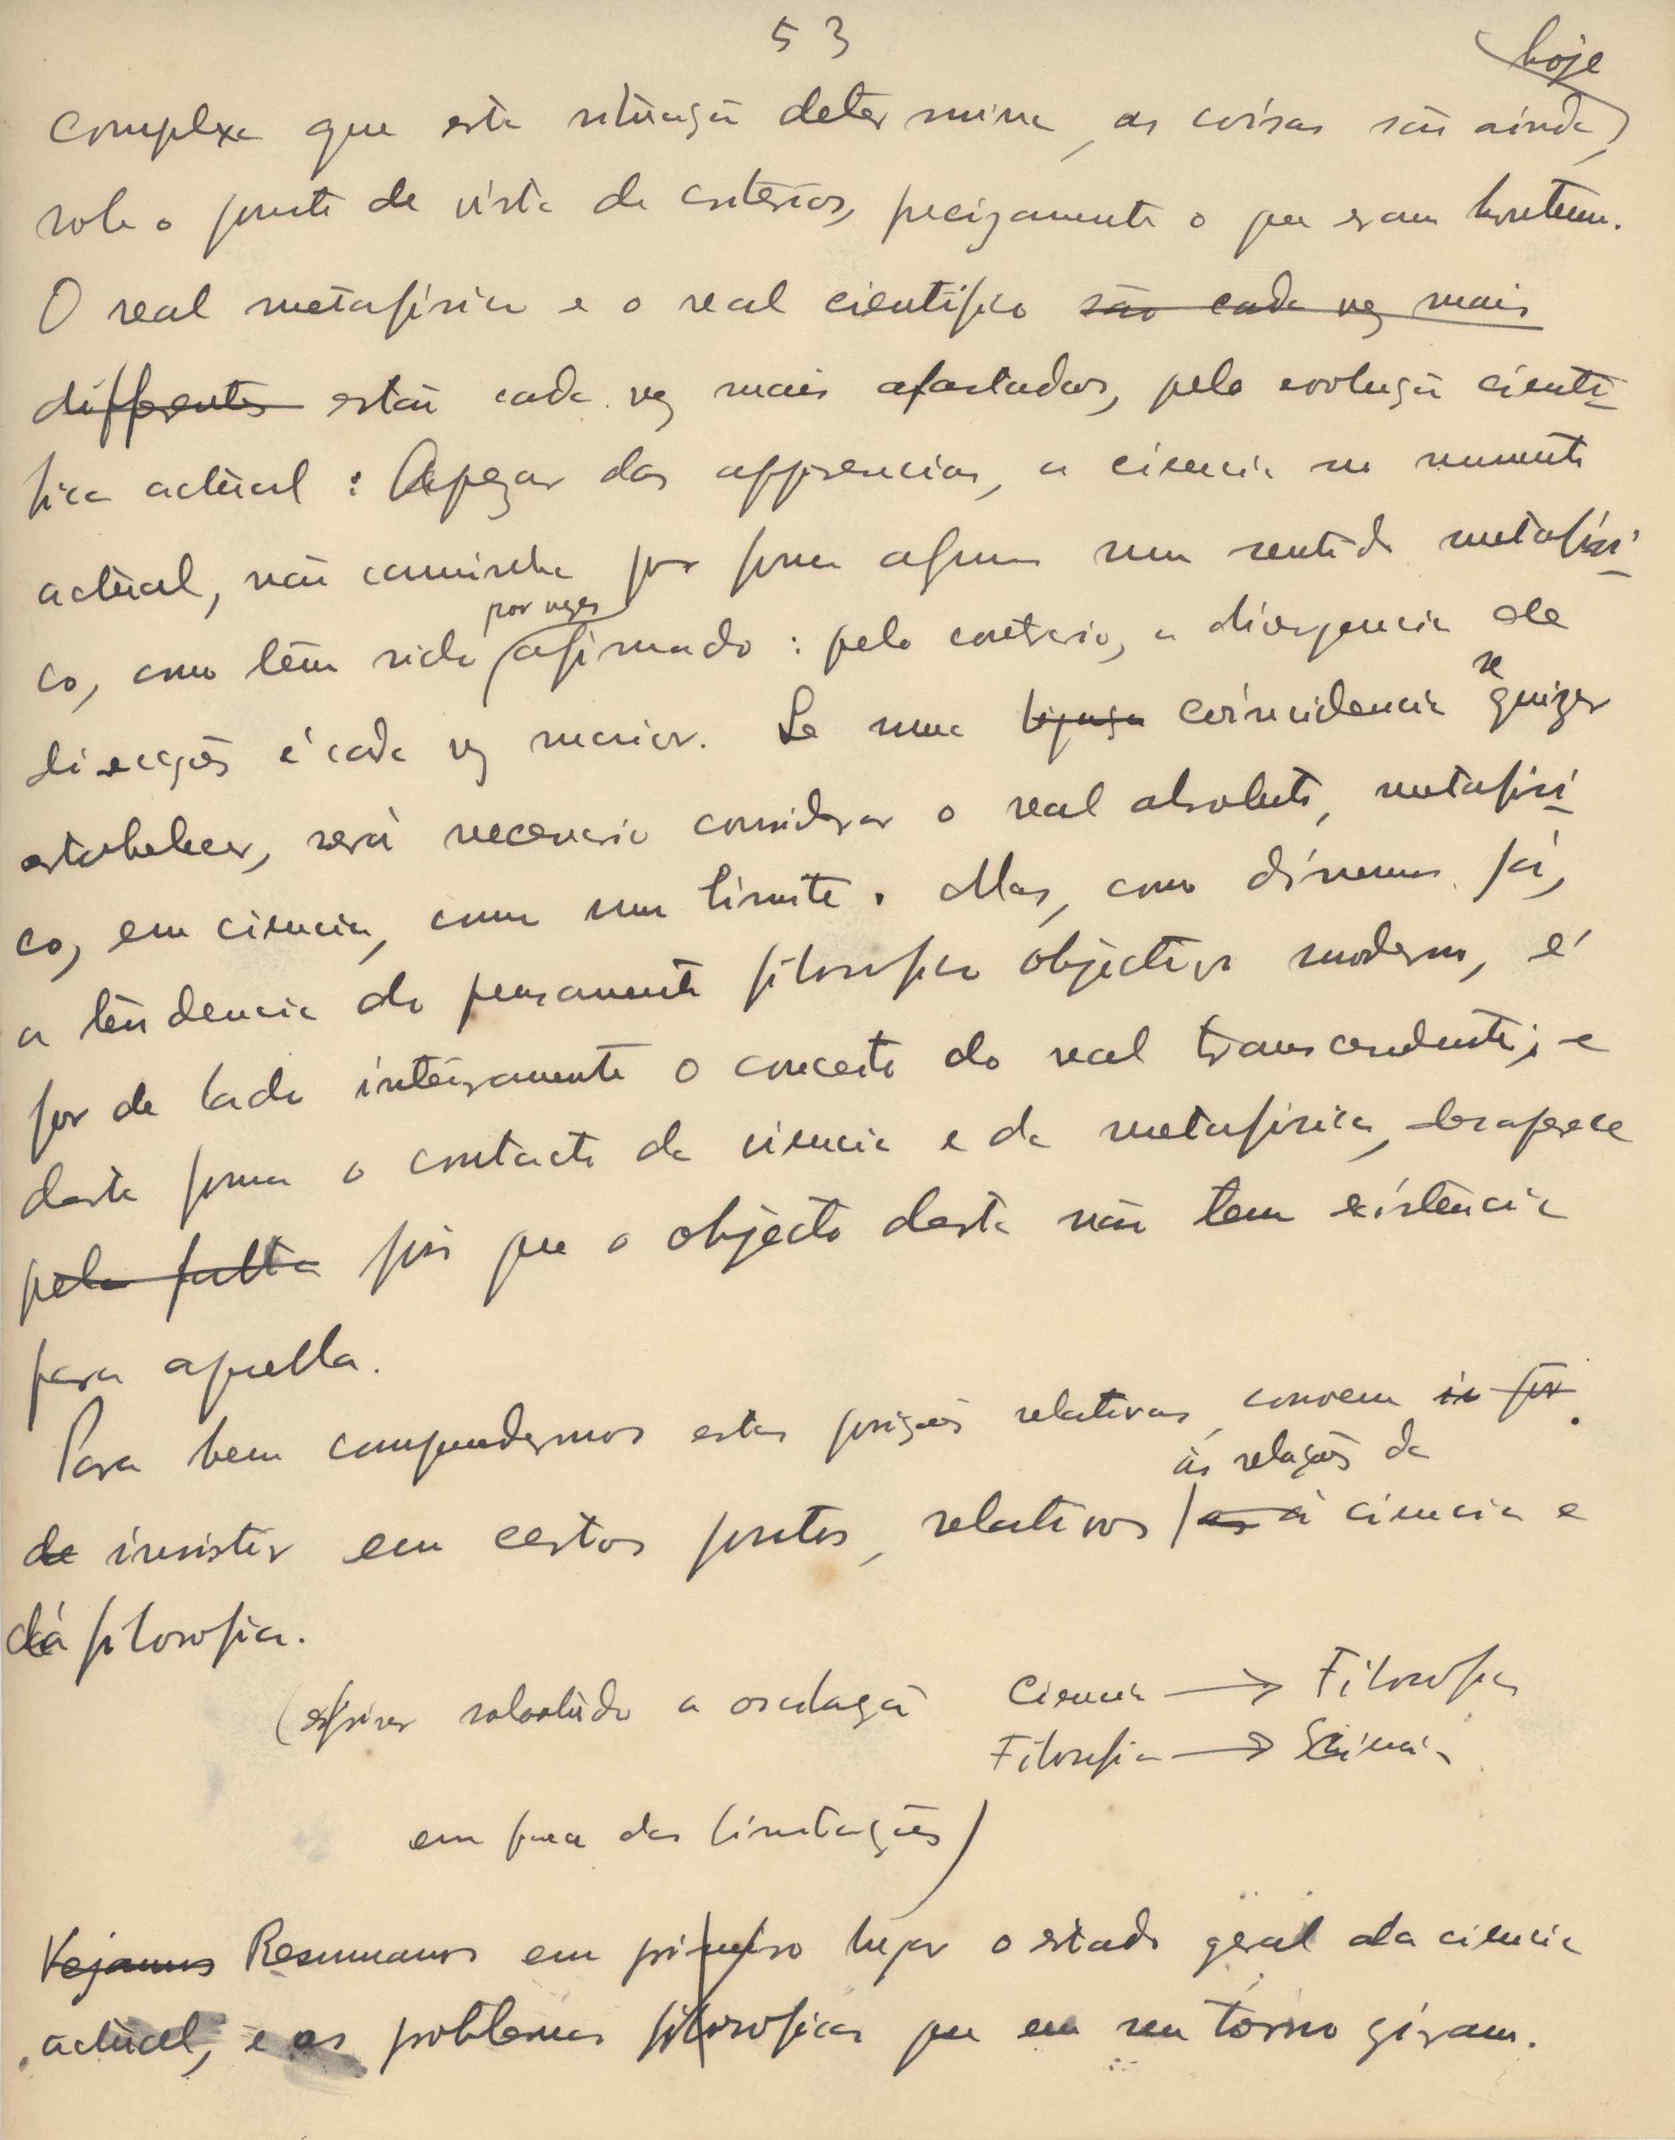 53
hoje
complexa que esta situação determina, as coisas são ainda,
sob o ponto de vista de critérios, precizamente o que eram hontem.
O real metafísico e o real científico são cada vez mais
differentes estão cada vez mais afastados, pela evolução cientí-
fica actual: Apezar das apparencias, a ciencia no momento
actual, não caminha por forma alguma num sentido metafísi-
por vezes
co, como têm sido afirmado: pelo contrario, a divergencia de
se
direcções é cada vez maior. Se uma coincidencia quizer
estabelecer, será necessario considerar o real absoluto, metafísi-
co, em ciencia, como um limite. Mas, como dissemos já,
a tendencia do pensamento filosofico objectivo moderno, é
por de lado inteiramente o conceito do real transcendente; e
desta forma o contacto da ciencia e da metafisica, desaparece
pela falta pois que o objecto desta não tem existencia
para aquella.
Para bem compreendermos estas posições relativas, convem
às relações da
de insistir em certos pontos, relativos as à ciencia e
dá filosofia.
(esfriar sobretudo a oscilação Ciencia → Filosofia
Filosofia → Sciencia
em face das limitações)
Vejamos Resumamos em primeiro lugar o estado geral da ciencia
actual, e os problemas filosoficos que em seu tôrno giram.